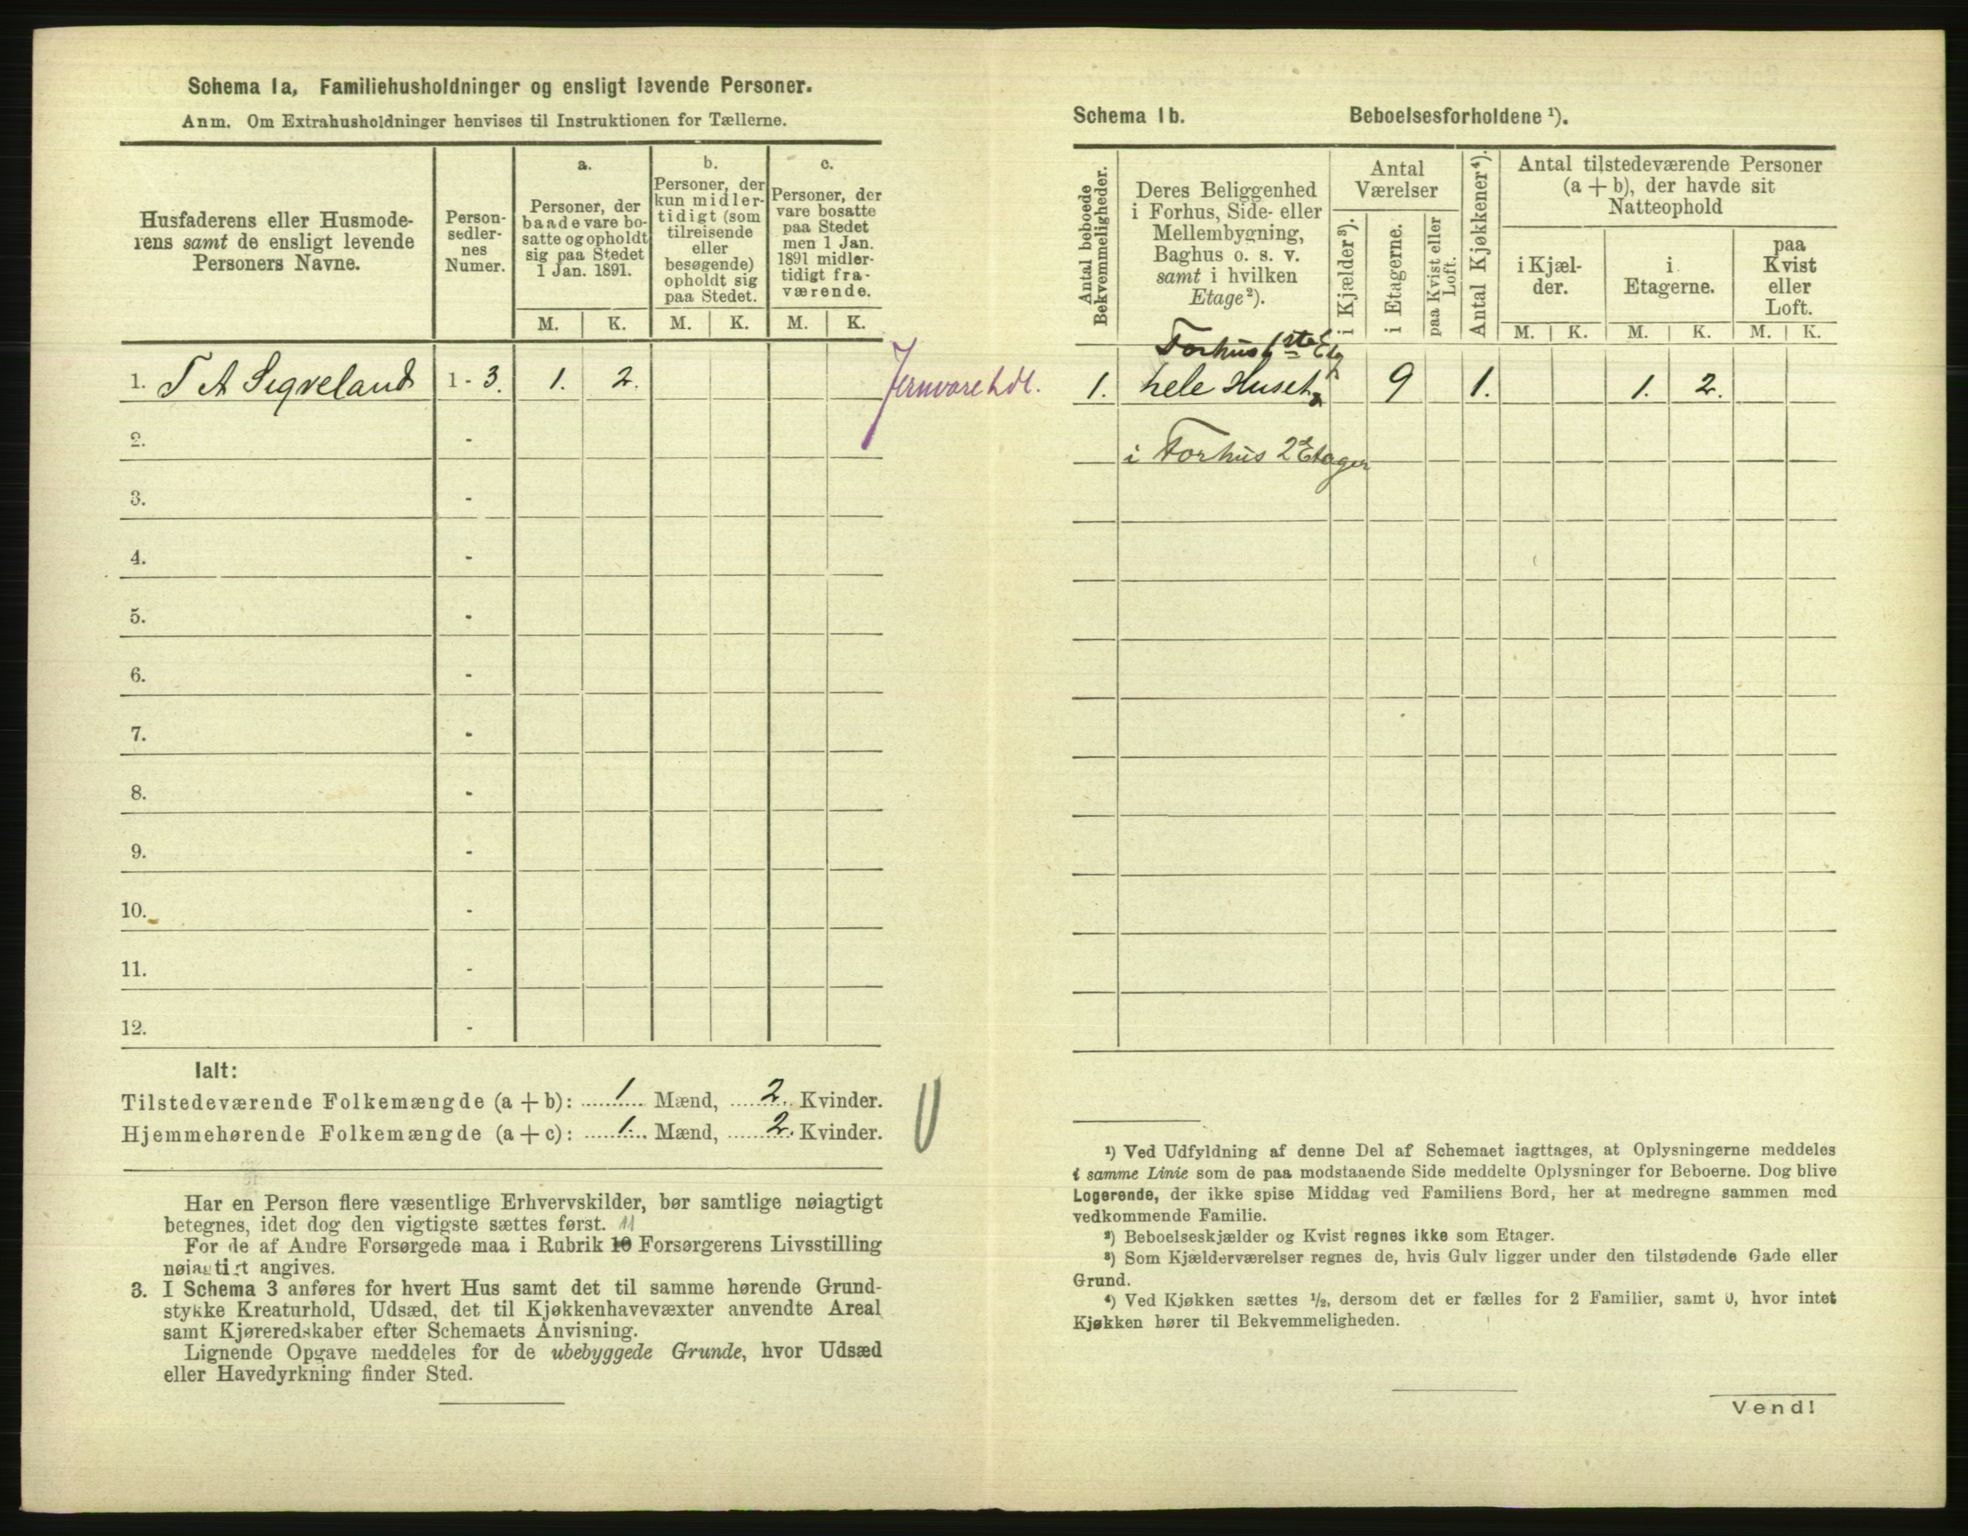 Schema 1a, Familiehusholdninger og ensligt levende Personer.
Anm. Om Extrahusholdninger henvises til Instruktionen for Tællerne.
Husfaderens eller Husmode-
rens samt de ensligt levende
Personers Navne.
Person-
sedler-
nes
Numer.
a.
Personer, der
baade vare bo-
satte og opholdt
sig paa Stedet
1 Jan. 1891.
b.
Personer, der
kun midler-
tidigt (som
tilreisende
eller
besøgende)
opholdt sig
paa Stedet.
c.
Personer, der
vare bosatte
paa Stedet
men 1 Jan.
1891 midler-
tidigt fra-
værende.
M. K. M. K. M. K.
1. T A Sigveland 1 - 3. 1. 2. Jernvarehdl.
2. -
3. -
4. -
5. -
6. -
7. -
8. -
9. -
10. -
11. -
12. -
Ialt:
Tilstedeværende Folkemængde (a + b): 1 Mænd, 2. Kvinder.
Hjemmehørende Folkemængde (a + c): 1. Mænd, 2. Kvinder.
Har en Person flere væsentlige Erhvervskilder, bør samtlige nøiagtigt
betegnes, idet dog den vigtigste sættes først. 11
For de af Andre Forsørgede maa i Rubrik 10 Forsørgerens Livsstilling
nøiagtigt angives.
3. I Schema 3 anføres for hvert Hus samt det til samme hørende Grund-
stykke Kreaturhold, Udsæd, det til Kjøkkenhavevæxter anvendte Areal
samt Kjøreredskaber efter Schemaets Anvisning.
Lignende Opgave meddeles for de ubebyggede Grunde, hvor Udsæd
eller Havedyrkning finder Sted.
Schema 1b. Beboelsesforholdene ¹).
Antal beboede
Bekvemmeligheder.
Deres Beliggenhed
i Forhus, Side- eller
Mellembygning,
Baghus o. s. v.
samt i hvilken
Etage²).
Antal
Værelser
i Kjælder³).
i Etagerne.
paa Kvist eller
Loft.
Antal Kjøkkener⁴).
Antal tilstedeværende Personer
(a + b), der havde sit
Natteophold
i Kjæl-
der.
i
Etagerne.
paa
Kvist
eller
Loft.
M. K. M. K. M. K.
Forhus 1ste Etg
1. hele Huset 9 1. 1. 2.
i Forhus 2 Etager
¹) Ved Udfyldning af denne Del af Schemaet iagttages, at Oplysningerne meddeles
i samme Linie som de paa modstaaende Side meddelte Oplysninger for Beboerne. Dog blive
Logerende, der ikke spise Middag ved Familiens Bord, her at medregne sammen med
vedkommende Familie.
²) Beboelseskjælder og Kvist regnes ikke som Etager.
³) Som Kjælderværelser regnes de, hvis Gulv ligger under den tilstødende Gade eller
Grund.
⁴) Ved Kjøkken sættes ¹/₂, dersom det er fælles for 2 Familier, samt 0, hvor intet
Kjøkken hører til Bekvemmeligheden.
Vend!